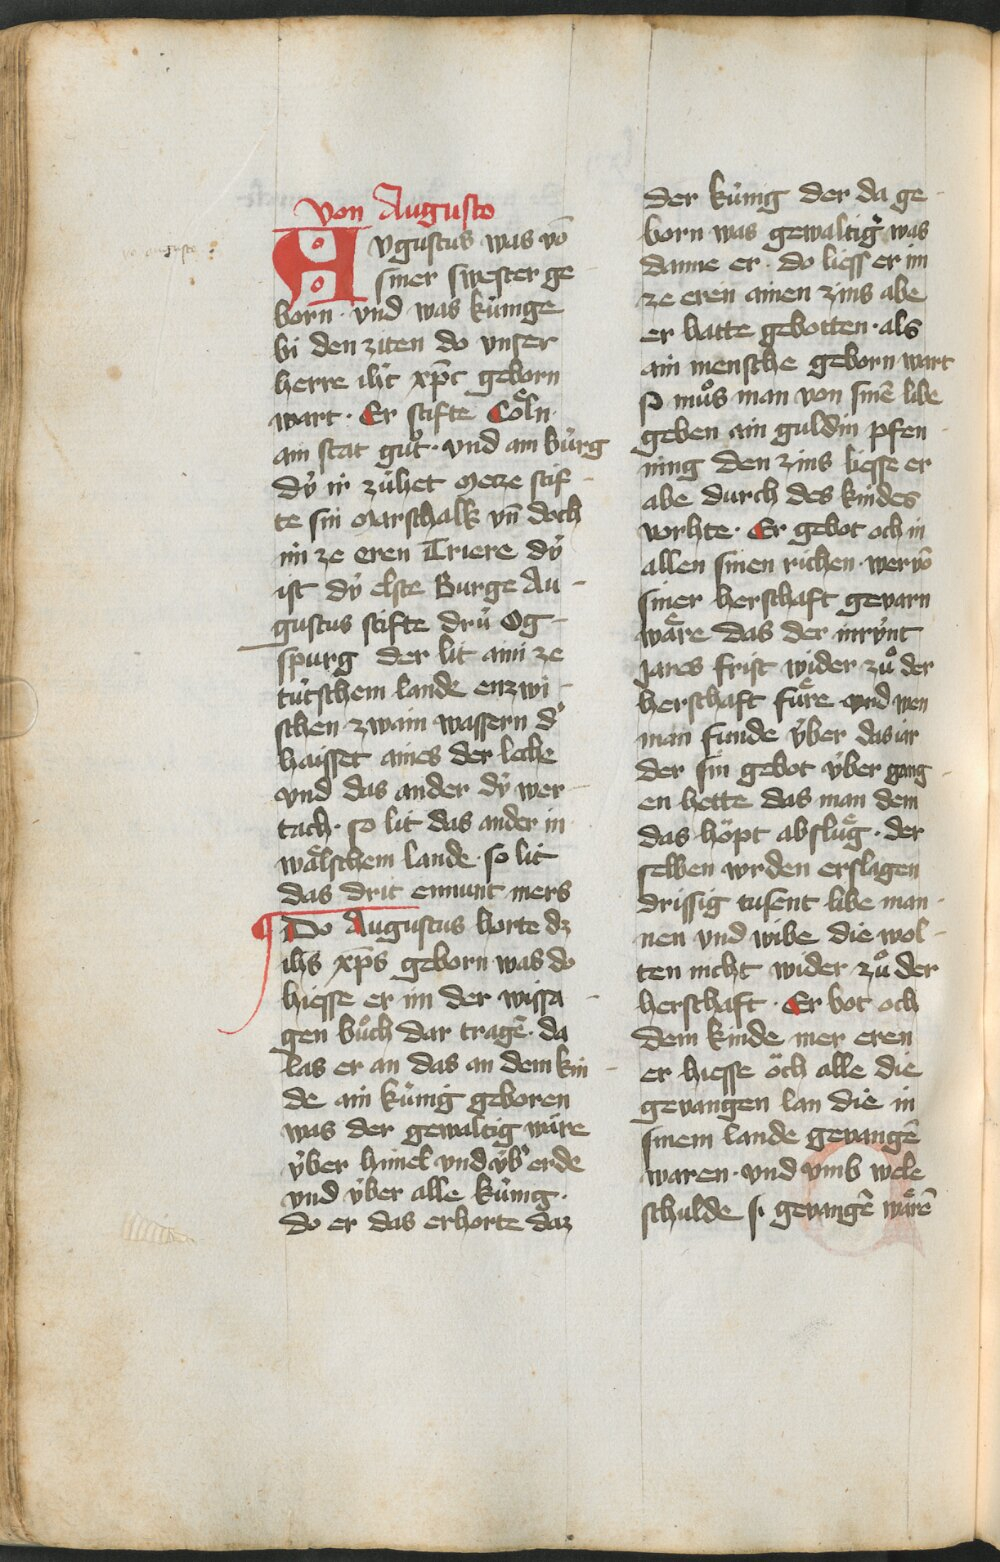 von Augusto
Avgustus was võ
siner swester ge
born · vnd was kúnge
bi den ziten do vnser
herre ih̃c xp̃c geborn
wart · Er stifte Coͤln
ain stat gůt · vnd ain búrg
dý ir zúhet Mecze stif
te sin Marschalk vñ doch
im ze eren Triere dý
ist dý elste Burge Au
gustus stifte drú Og
spurg der lit aini ze
tútschem lande enzwi
schen zwain wassern dˀ
haisset aines der leche
vnd das ander dý wer
tach · so lit das ander in
waͤlschem lande · so lit
das drit ennunt mers
Do Augustus horte dz
ih̃s xp̃s geborn was do
hiesse er im der wissa
gen bůch dar tragẽ · da
las er an das an dem kin
de ain kúnig geboren
was der gewaltig wäre
v́ber himel vnd v́bˀ erde
vnd v́ber alle kúnig ·
do er das erhorte daz
der kúnig der da ge
born was gewaltigˀ was
danne er · do liess er im
ze eren ainen zins abe
er hatte gebotten · als
ain mensche geborn wart
so můs man von sinẽ libe
geben ain guldin pfen
ning den zins liesse er
abe durch des kindes
vorhte · Er gebot och in
allen sinen richen · wer võ
siner herschaft gevarn
waͤre das der inrýnt
jares frist wider zů der
herschaft fuͤre vnd wen
man funde v́ber das iar
der sin gebot v́ber gang
en hette das man dem
das höpt abslůg · der
selben wrden erslagen
drissig tusent libe man
nen vnd wibe die wol
ten nicht wider zů der
herschaft · Er bot och
dem kinde mer eren
er hiesse öch alle die
gevangen lan die in
sinem lande gevangẽ
waren · vnd vmb wele
schulde si gevangẽ waͤrẽ